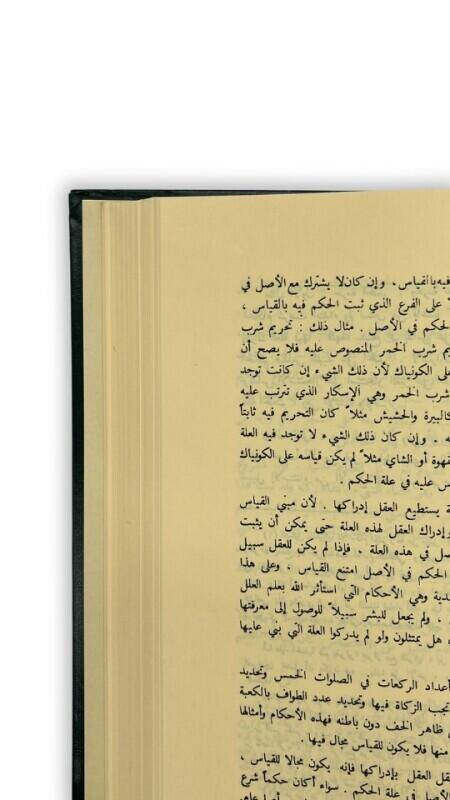 فيه بالقياس ، وإن كان لا يشترك مع الأصل في
على الفرع الذي ثبت الحكم فيه بالقياس ،
الحكم في الأصل . مثال ذلك : تحريم شرب
شرب الخمر المنصوص عليه فلا يصح أن
على الكونياك لأن ذلك الشيء إن كانت توجد
شرب الخمر وهي الإسكار الذي تترتب عليه
كالبيرة والحشيش مثلاً كان التحريم فيه ثابتاً
. وإن كان ذلك الشيء لا توجد فيه العلة
أو الشاي مثلاً لم يكن قياسه على الكونياك
عليه في علة الحكم .
يستطيع العقل إدراكها . لأن مبني القياس
إدراك العقل لهذه العلة حتى يمكن أن يثبت
في هذه العلة . فإذا لم يكن للعقل سبيل
الحكم في الأصل امتنع القياس ، وعلى هذا
وهي الأحكام التي استأثر الله بعلم العلل
، ولم يجعل للبشر سبيلاً للوصول إلى معرفتها
هل يمتثلون ولو لم يدركوا العلة التي بني عليها
أعداد الركعات في الصلوات الخمس وتحديد
تجب الزكاة فيها وتحديد عدد الطواف بالكعبة
ظاهر الخف دون باطنه فهذه الأحكام وأمثالها
منها فلا يكون للقياس مجال فيها .
العقل بإدراكها فإنه يكون مجالا للقياس ،
الأصل في علة الحكم . سواء أكان حكماً شرع